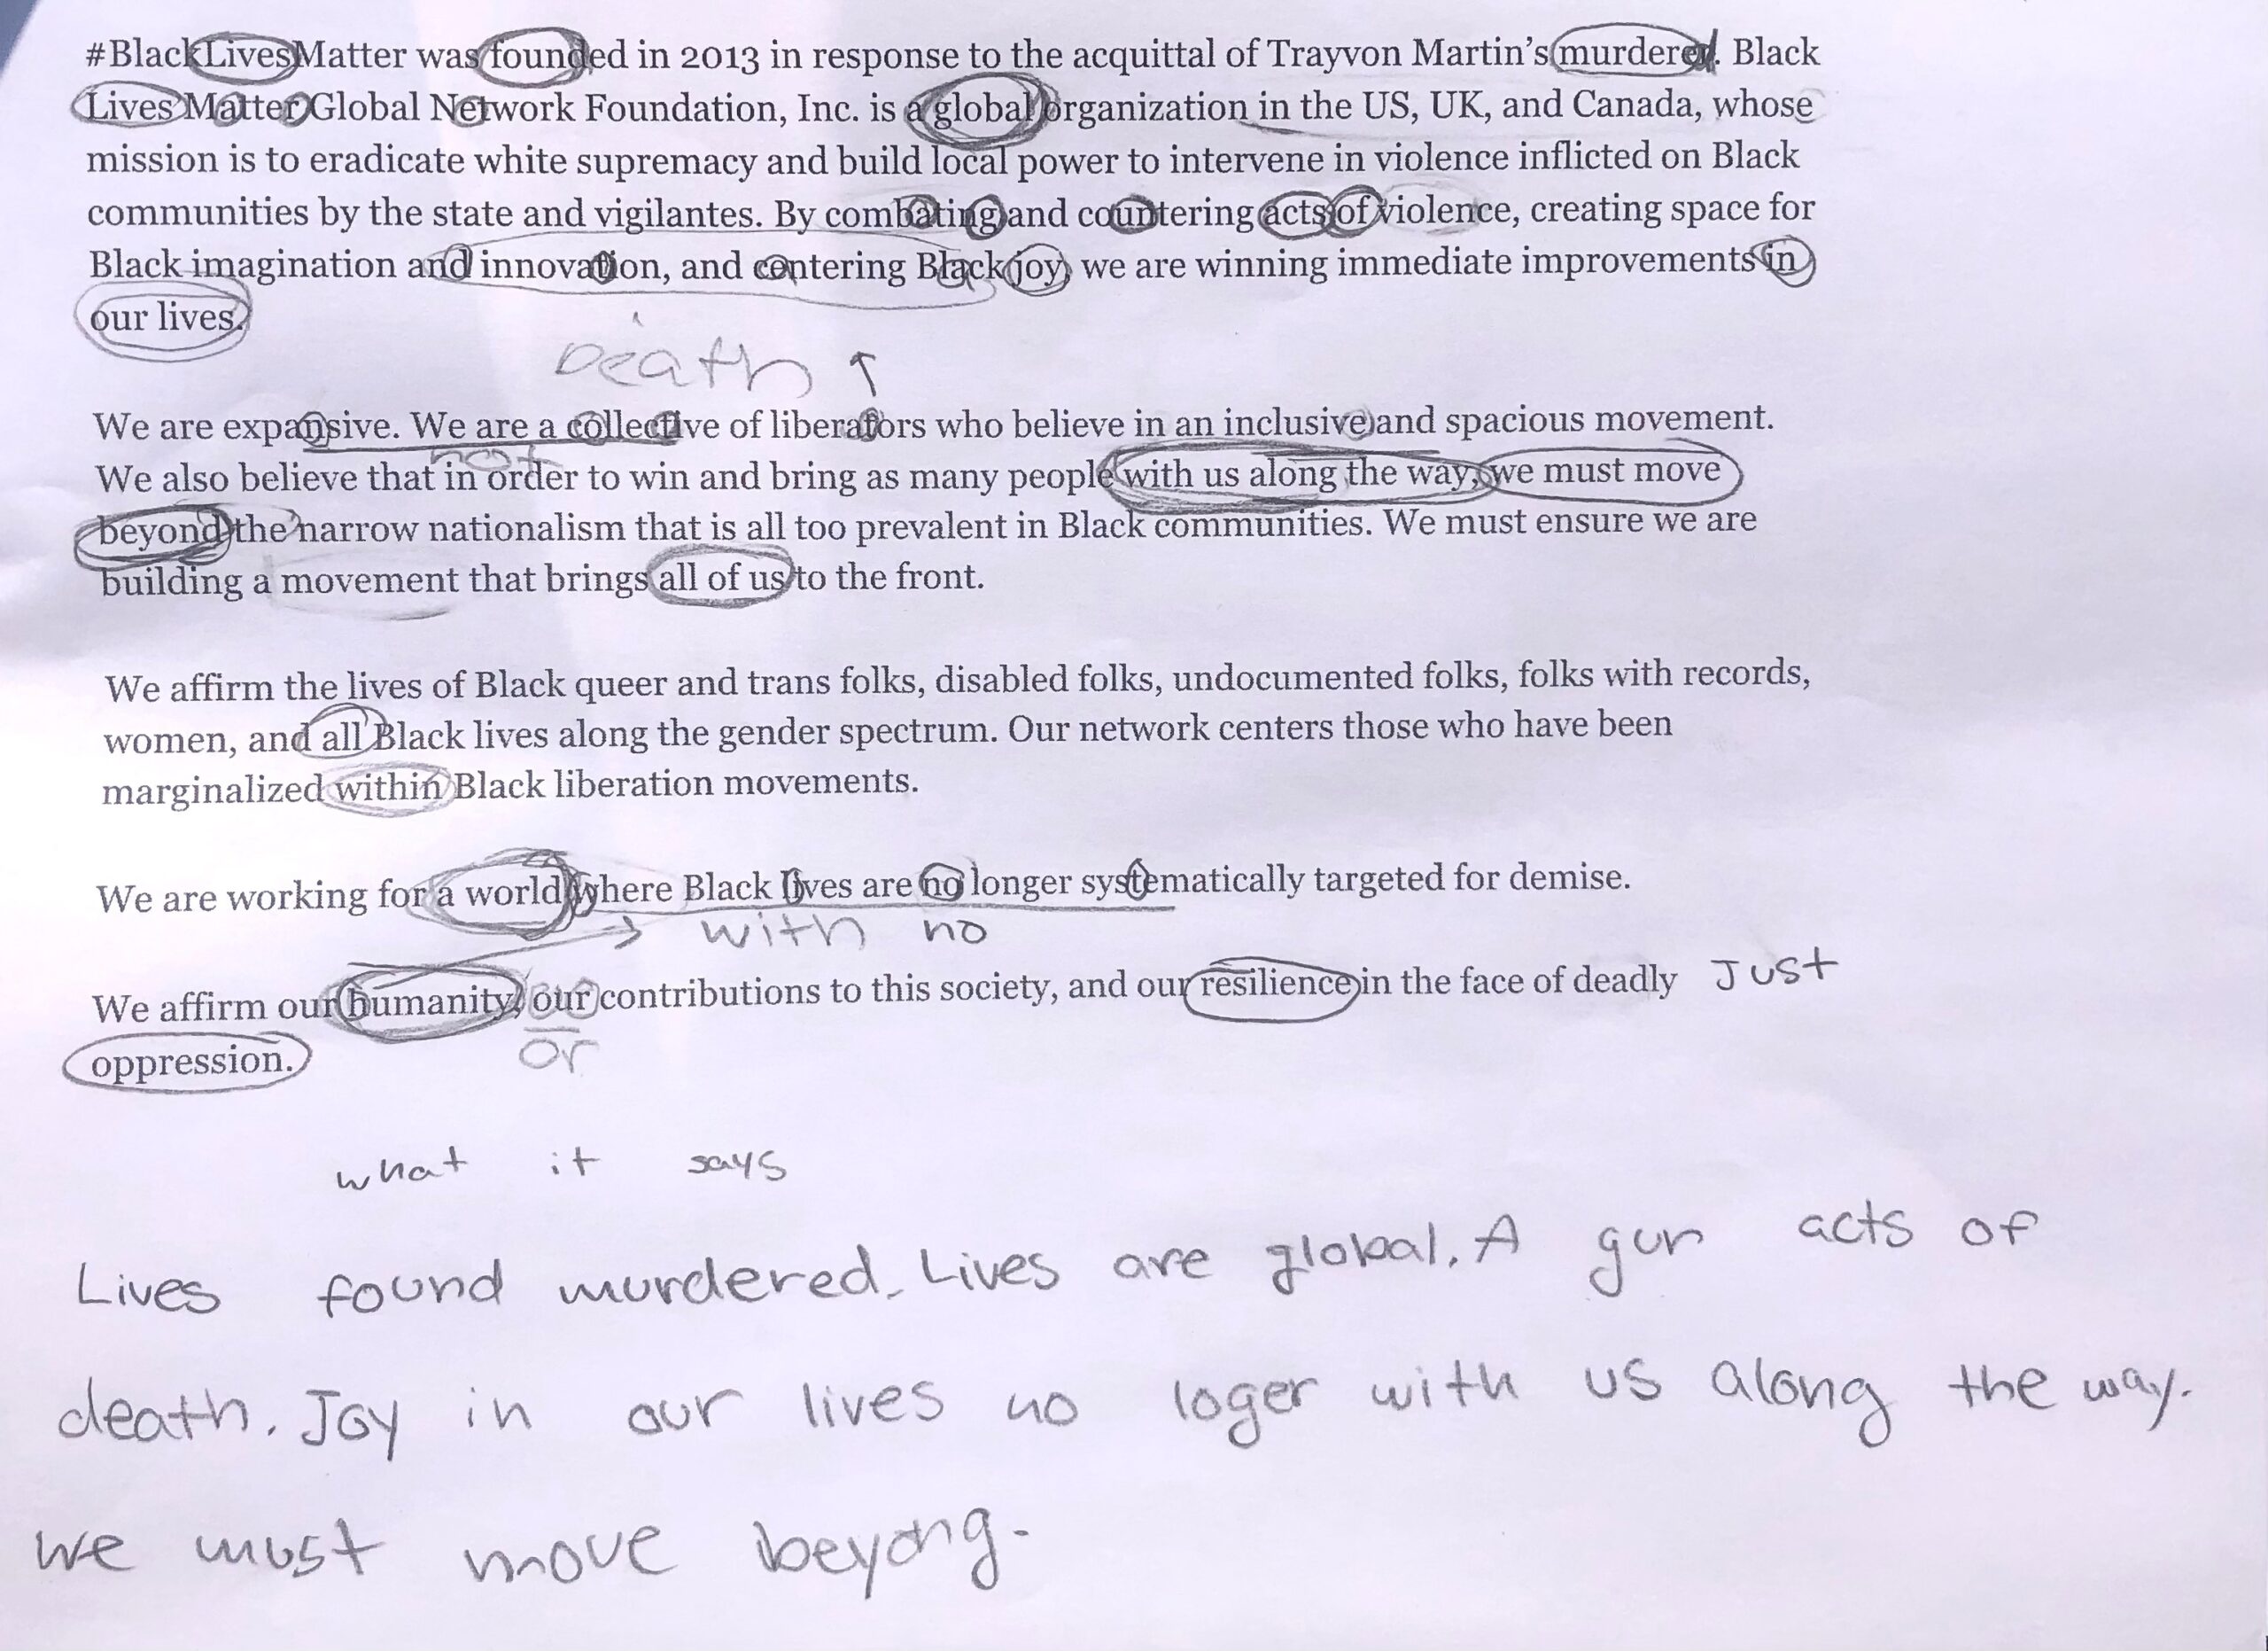 #BlackLivesMatter was founded in 2013 in response to the acquittal of Trayvon Martin's murderer. Black
Lives Matter Global Network Foundation, Inc. is a global organization in the US, UK, and Canada, whose
mission is to eradicate white supremacy and build local power to intervene in violence inflicted on Black
communities by the state and vigilantes. By combating and countering acts of violence, creating space for
Black imagination and innovation, and centering Black joy, we are winning immediate improvements in
our lives.
Death ↑
We are expansive. We are a collective of liberators who believe in an inclusive and spacious movement.
not
We also believe that in order to win and bring as many people with us along the way, we must move
beyond the narrow nationalism that is all too prevalent in Black communities. We must ensure we are
building a movement that brings all of us to the front.
We affirm the lives of Black queer and trans folks, disabled folks, undocumented folks, folks with records,
women, and all Black lives along the gender spectrum. Our network centers those who have been
marginalized within Black liberation movements.
We are working for a world where Black lives are no longer systematically targeted for demise.
→ with no
We affirm our humanity, our contributions to this society, and our resilience in the face of deadly Just
oppression.
or
what it says
Lives found murdered. Lives are global. A gun acts of
death. Joy in our lives no loger with us along the way.
we must move beyong.